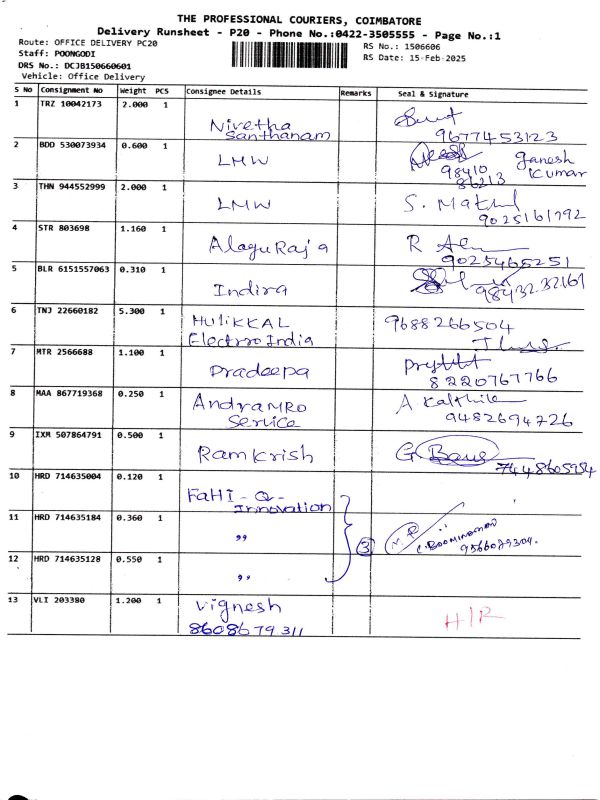 THE PROFESSIONAL COURIERS, COIMBATORE
Delivery Runsheet - P20 - Phone No.:0422-3505555 - Page No.:1
Route: OFFICE DELIVERY PC20
Staff: POONGODI
DRS No.: DCJB150660601
Vehicle: Office Delivery
RS No.: 1506606
RS Date: 15-Feb-2025
S No Consignment No Weight PCS Consignee Details Remarks Seal & Signature
1 TRZ 10042173 2.000 1
Nivetha
Santhanam
9677453123
2 BDD 530073934 0.600 1
LMW
Ganesh
Kumar
98410
86213
3 THN 944552999 2.000 1
LMW
9025161792
4 STR 803698 1.160 1
AlaguRaja
9025465251
5 BLR 6151557063 0.310 1
Indira
9843232161
6 TNJ 22660182 5.300 1
HUliKKAL
ElectroIndia
9688266504
7 MTR 2566688 1.100 1
Pradeepa
8220767766
8 MAA 867719368 0.250 1
AndraMRO
Service
A
9482694726
9 IXM 507864791 0.500 1
Ramkrish
G
7448605954
10 HRD 714635004 0.120 1
FaHI-Q-
Innovation
11 HRD 714635184 0.360 1
,,
3
C.BOOMINATHAN
9566079304.
12 HRD 714635128 0.550 1
,,
13 VLI 203380 1.200 1
Vignesh
8608679311
H/R